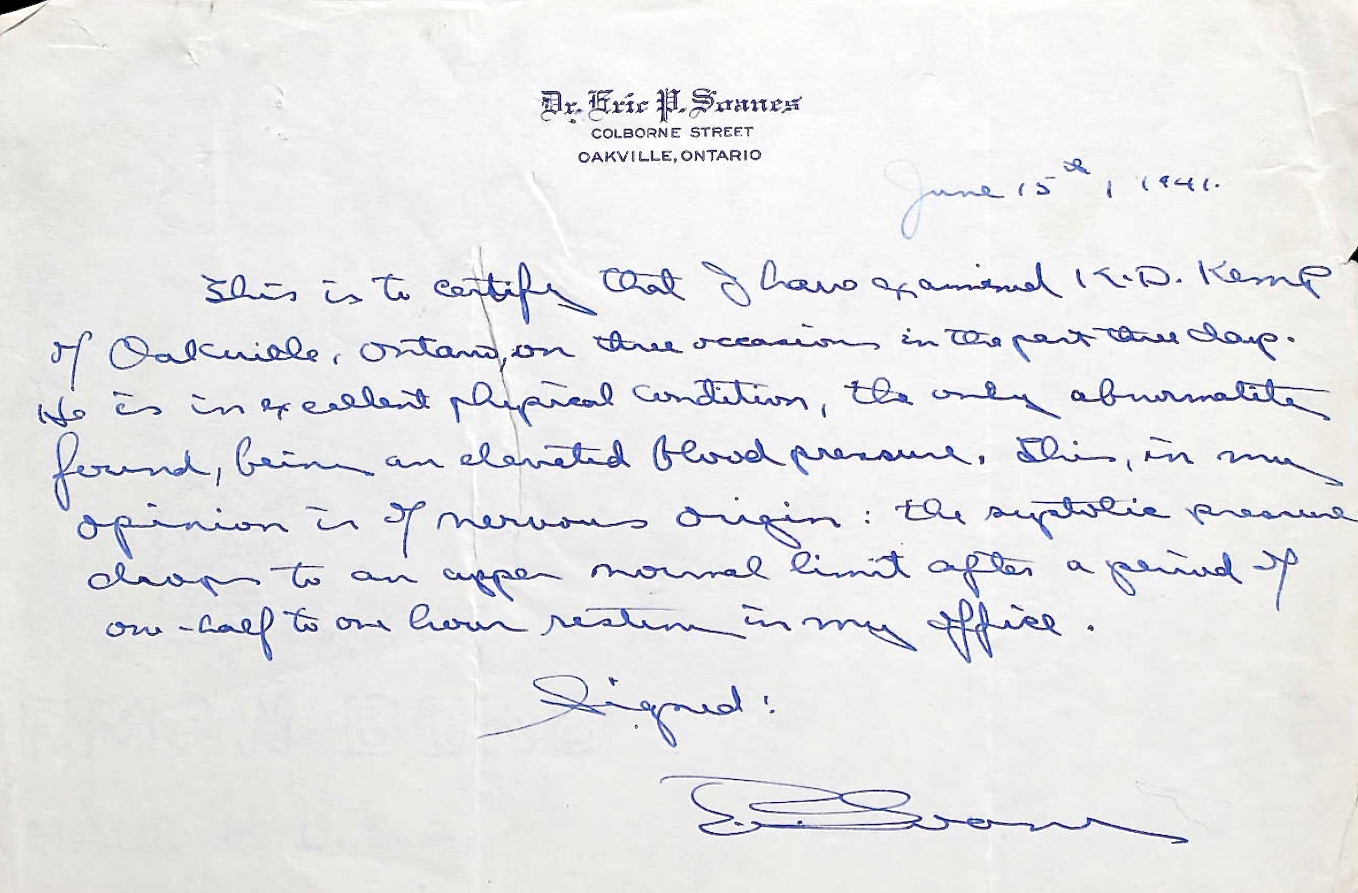 Dr. Eric P. Soanes
COLBORNE STREET
OAKVILLE, ONTARIO
June 15th, 1941.
This is to certify that I have examined K.D. Kemp
of Oakville, Ontario, on three occasions in the past three days.
He is in excellent physical condition, the only abnormalities
found, being an elevated blood pressure. This, in my
opinion is of nervous origin: the systolic pressure
drops to an upper normal limit after a period of
one-half to one hour resting in my office.
Signed:
E.P. Soanes